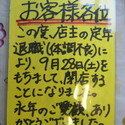 お客様各位
この度、店主の定年
退職(体調不良)に
より、9月28日(土)を
もちまして、閉店する
ことになりました。
永年のご愛顧、あり
がとうございました